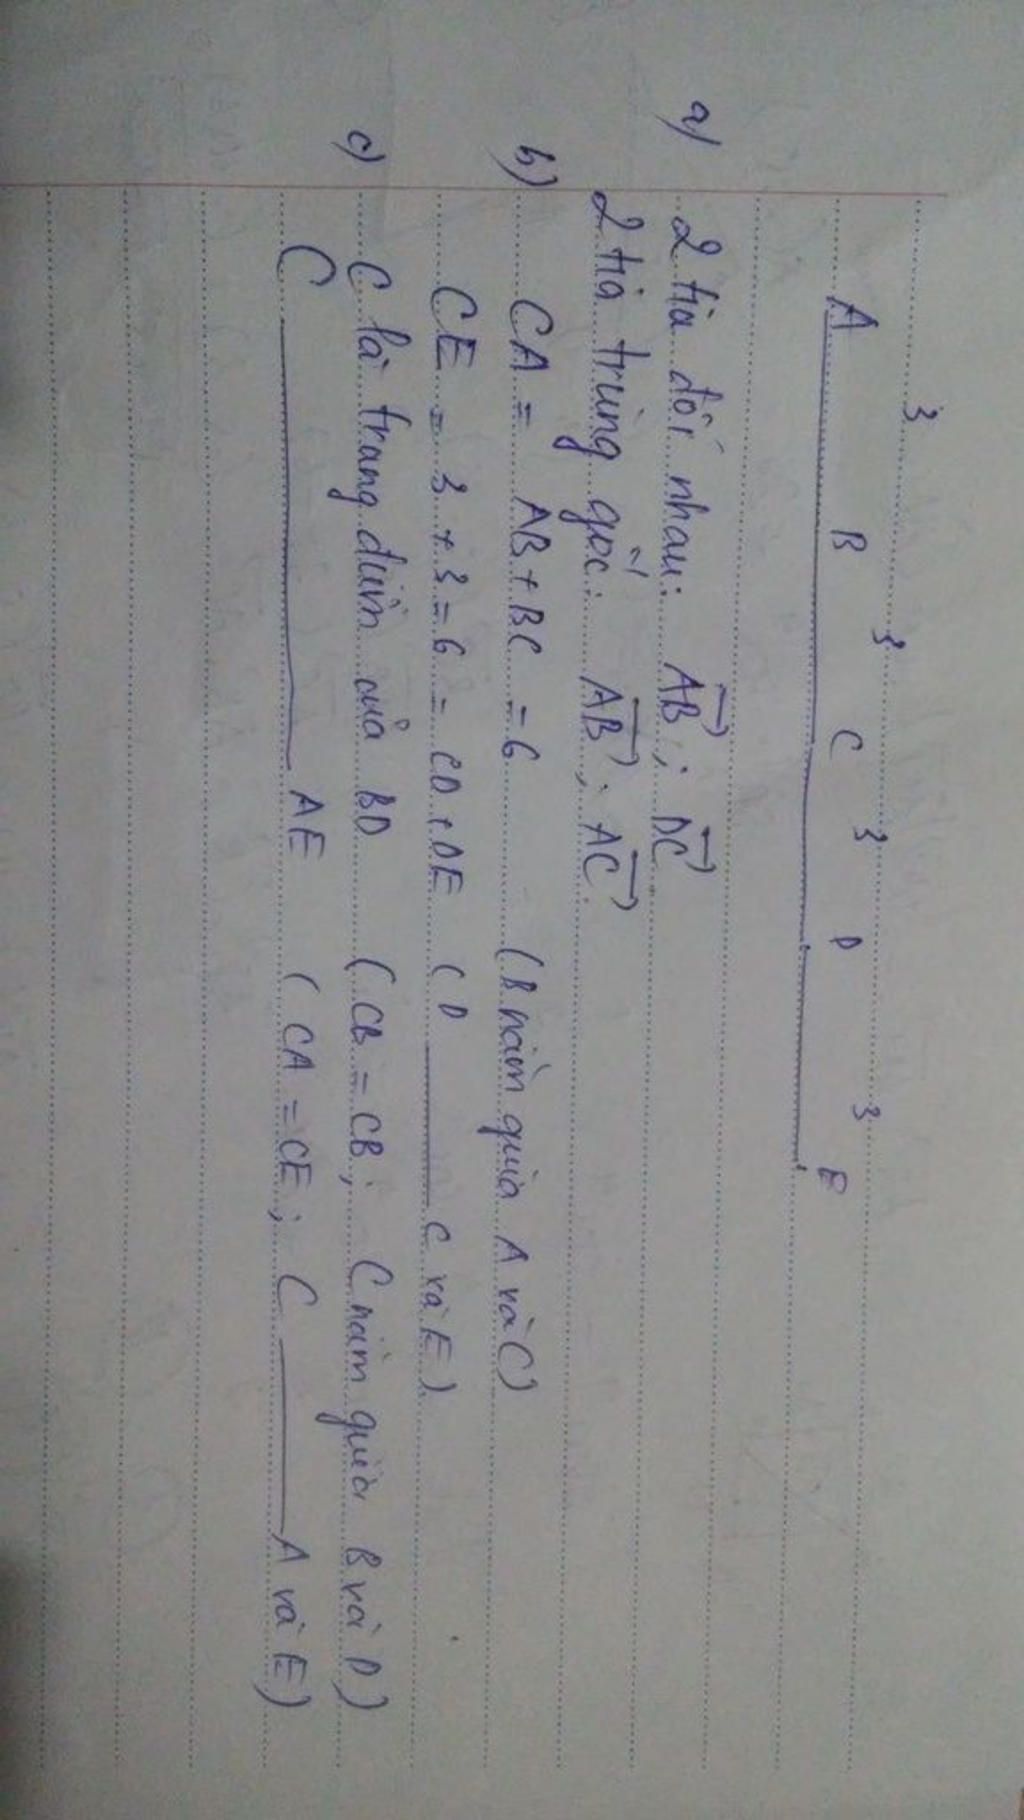 3 3 3 3
A B C D E
a) 2 tia đối nhau: AB; DC
2 tia trùng gốc: AB; AC.
b) CA = AB + BC = 6 (B nằm giữa A và C)
CE = 3 + 3 = 6 = CD + DE (D ______ C và E).
c) C là trung điểm của BD (CB = CB; C nằm giữa B và D)
C ______ AE (CA = CE; C ______ A và E)